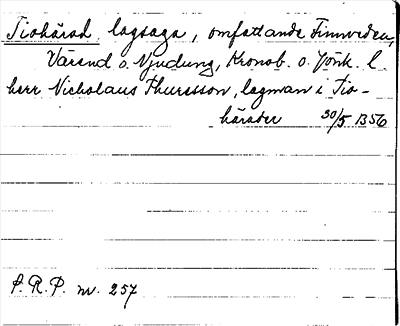 Tiohärad, lagsaga, omfattande Finnveden,
Värend o. Njudung, Kronob. o. Jönk. l.
herr Nicholaus Thuresson, lagman i Tio-
härader 30/5 1356
S.R.P. nr. 257